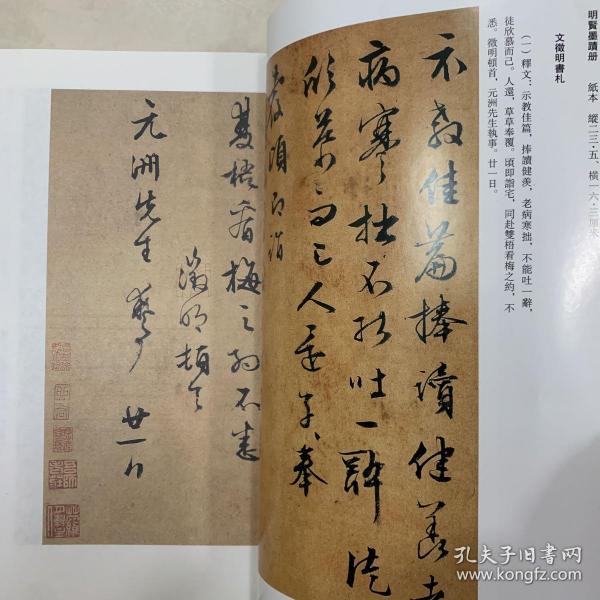 明賢墨蹟册 紙本 縱二三·五、橫一六·三厘米
文徵明書札
（一）釋文：示教佳篇，捧讀健羨，老病寒拙，不能吐一辭，
徒欣慕而已。人還，草草奉覆。頃即詣宅，同赴雙梧看梅之約，不
悉。徵明頓首，元洲先生執事。廿一日。
示教佳篇捧讀健羨老
病寒拙不能吐一辭徒
欣慕而已人還草草奉
覆頃即詣
雙梧看梅之約不悉
徵明頓首
元洲先生執事 廿一日
孔夫子旧书网
www.kongfz.com